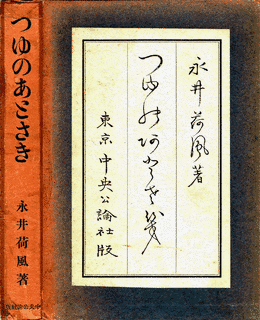 永井荷風著
つゆのあとさき
東京 中央公論社版
つゆのあとさき
永井荷風著